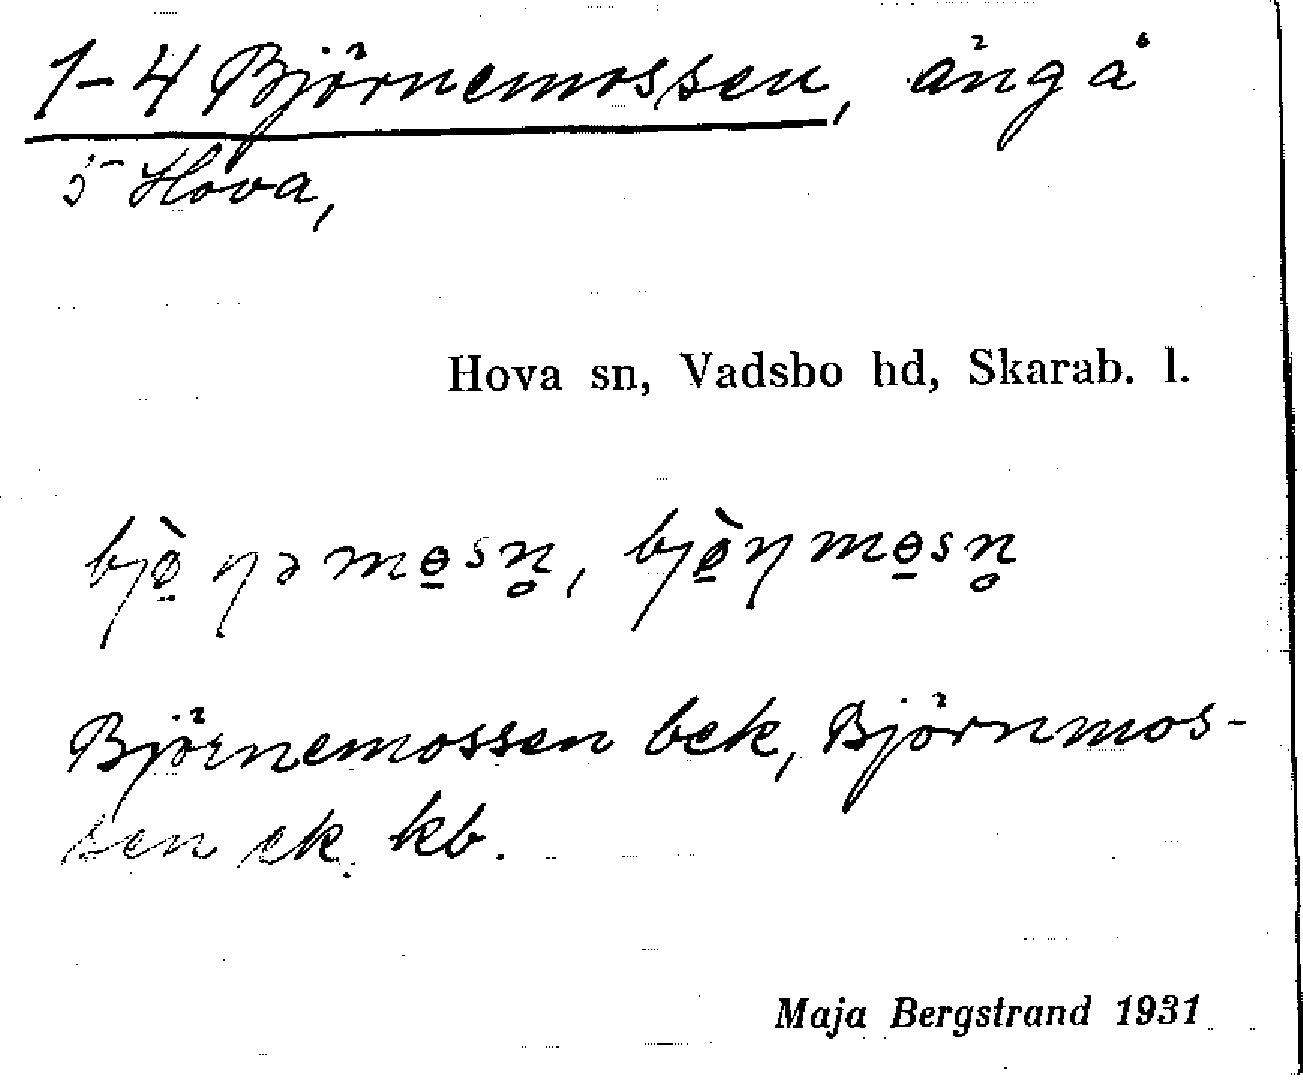 1-4 Björnemossen, äng å
5 Hova,
Hova sn, Vadsbo hd, Skarab. l.
bjø̠̀ɳəmɵ̠sn̥, bjø̠̀ɳmɵ̠sn̥
Björnemossen bek, Björnmos-
sen ek. kb.
Maja Bergstrand 1931